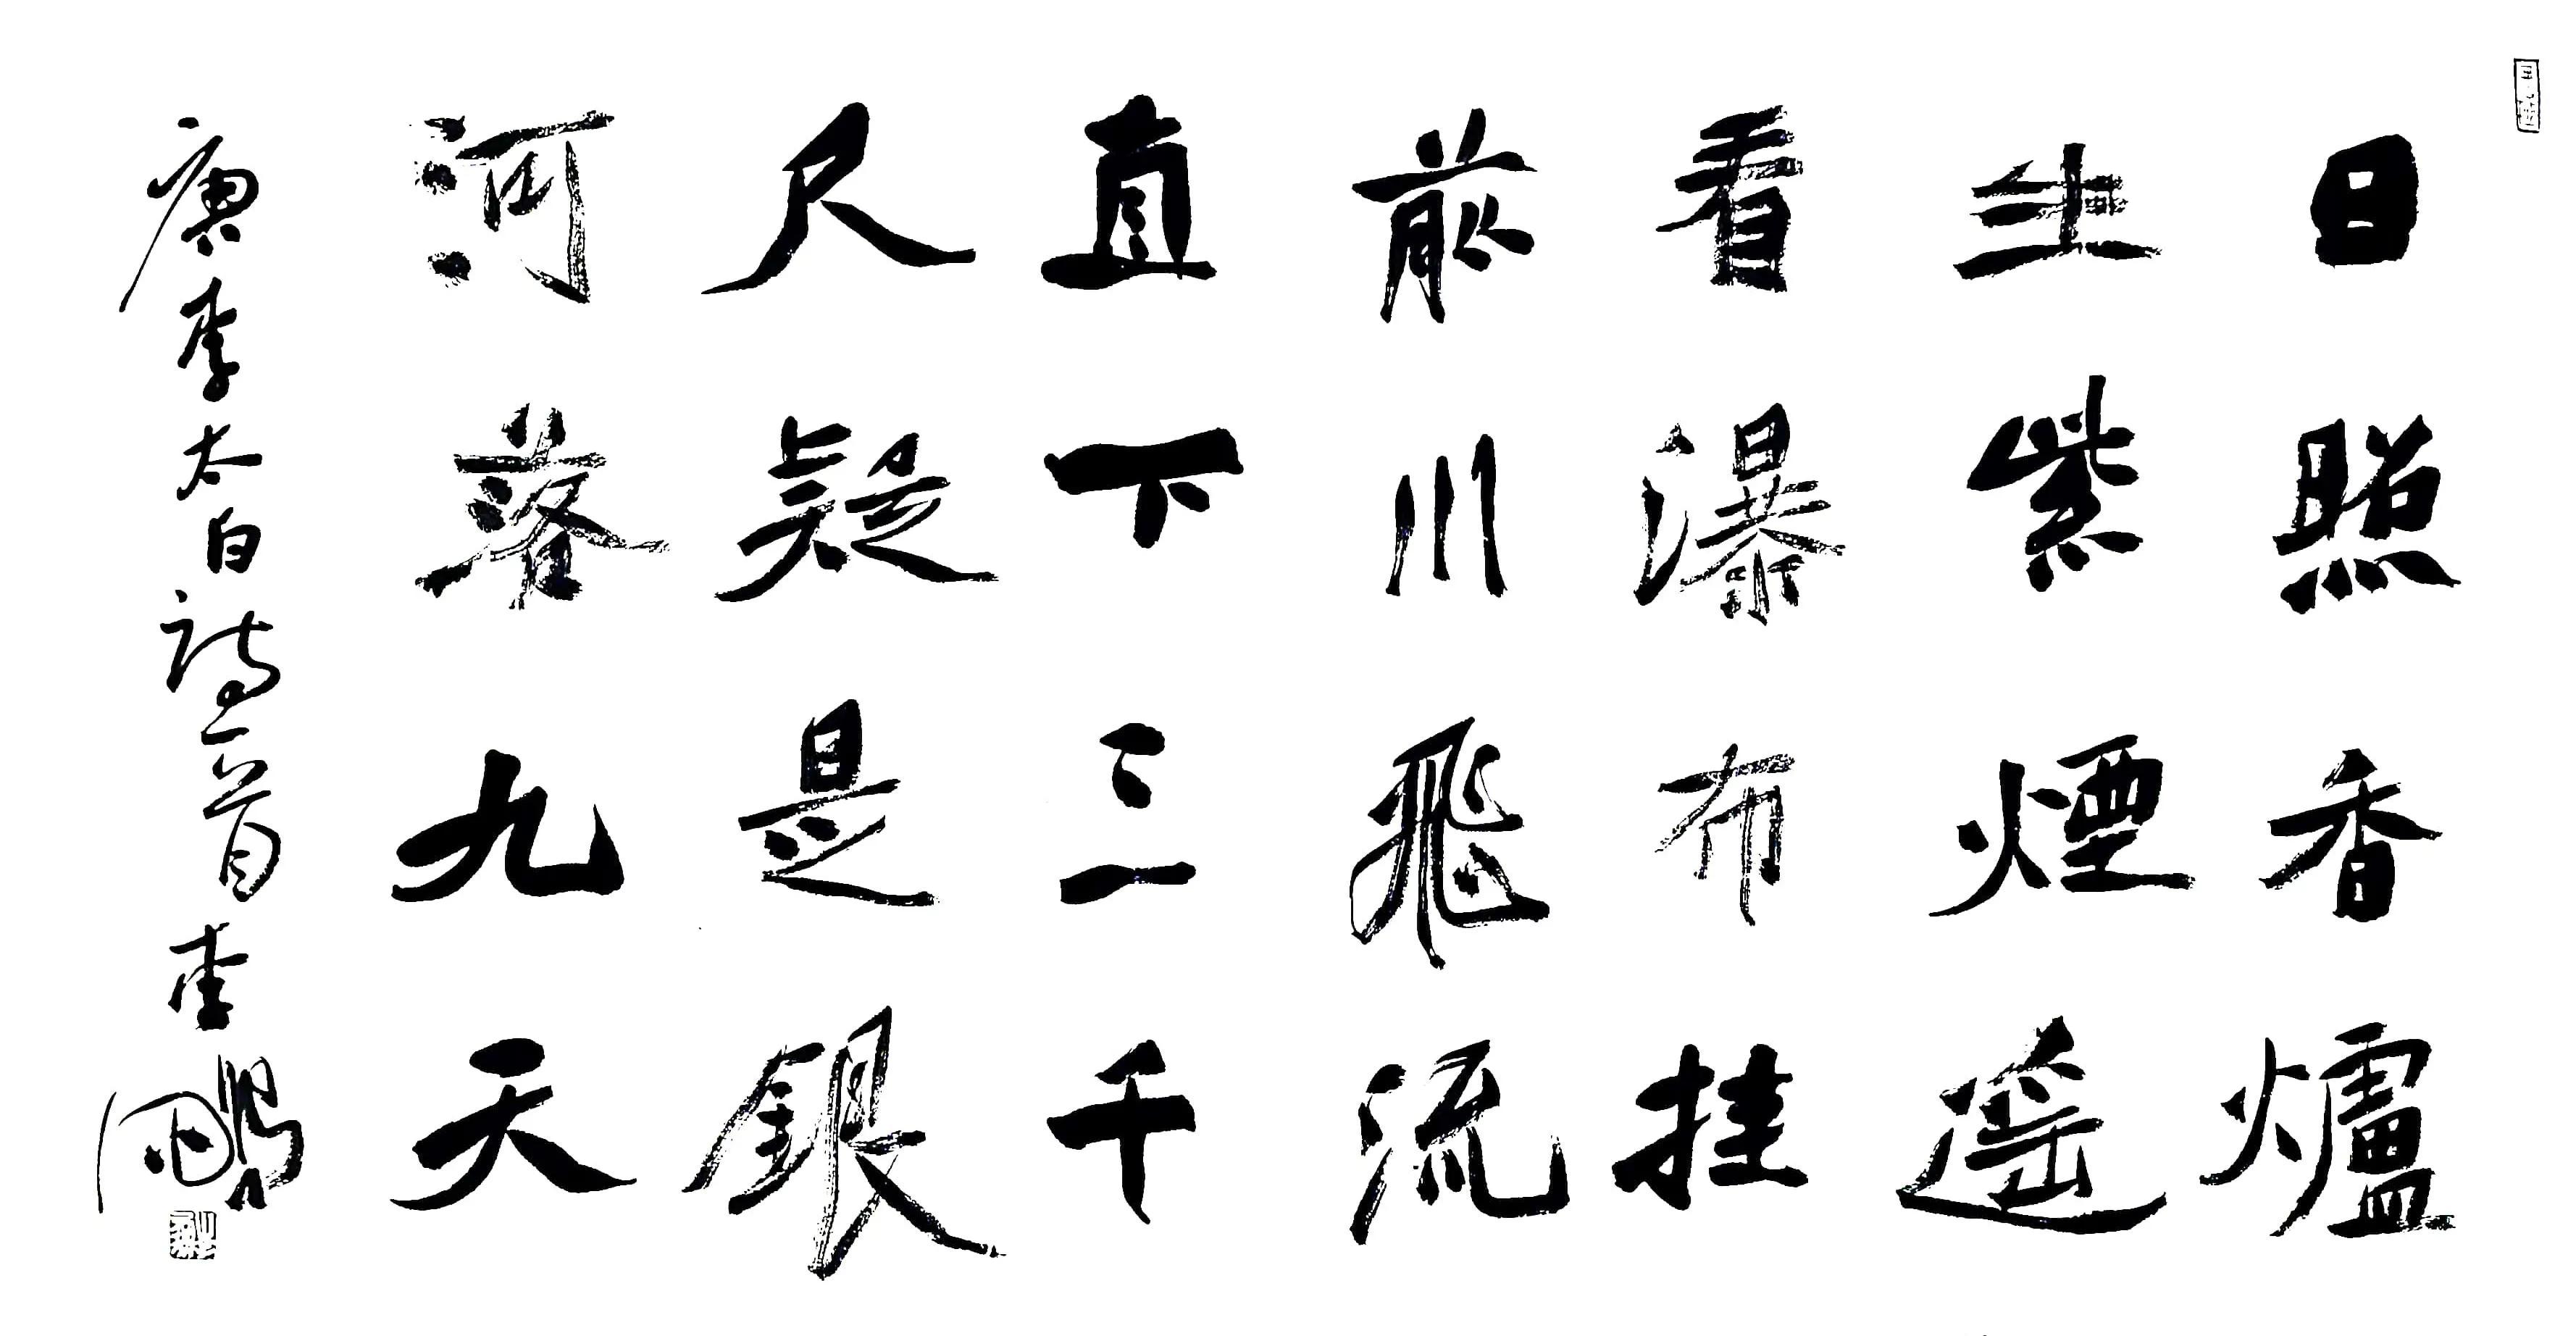 日照香爐
生紫煙遙
看瀑布挂
前川飛流
直下三千
尺疑是銀
河落九天
唐李太白詩一首李